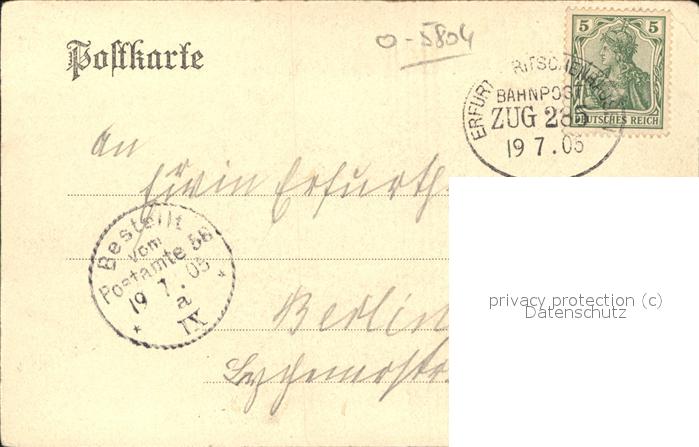 o-5804
Postkarte
5 5
DEUTSCHES REICH
ERFURT RITSCHENHAUSEN
BAHNPOST
ZUG 285
19 7. 05
An
Erwin Erfurth
Bestellt
vom
Postamte 58
19 7. 05
a
IX
Berlin
privacy protection (c)
Datenschutz